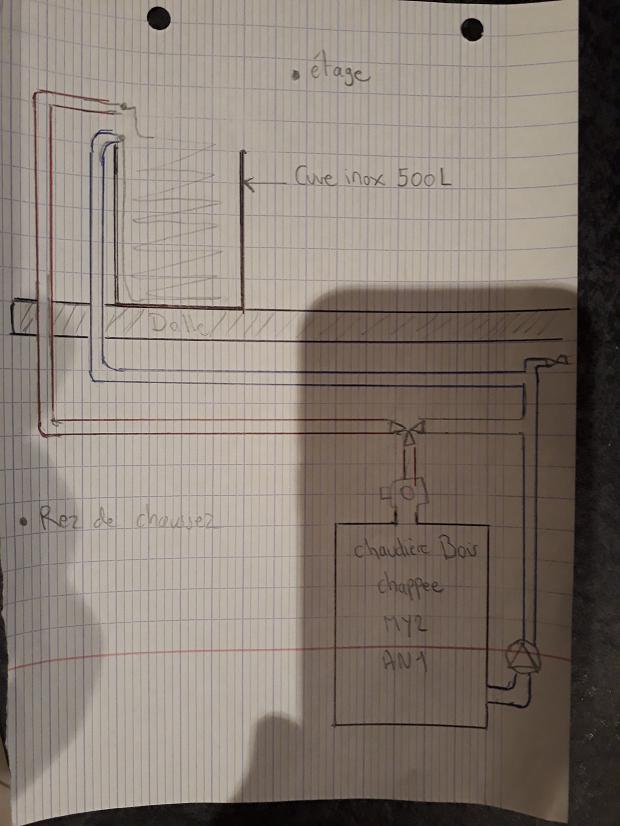 • étage
Cuve inox 500L
Dalle
• Rez de chaussez
chaudière Bois
chappee
MY2
AN1